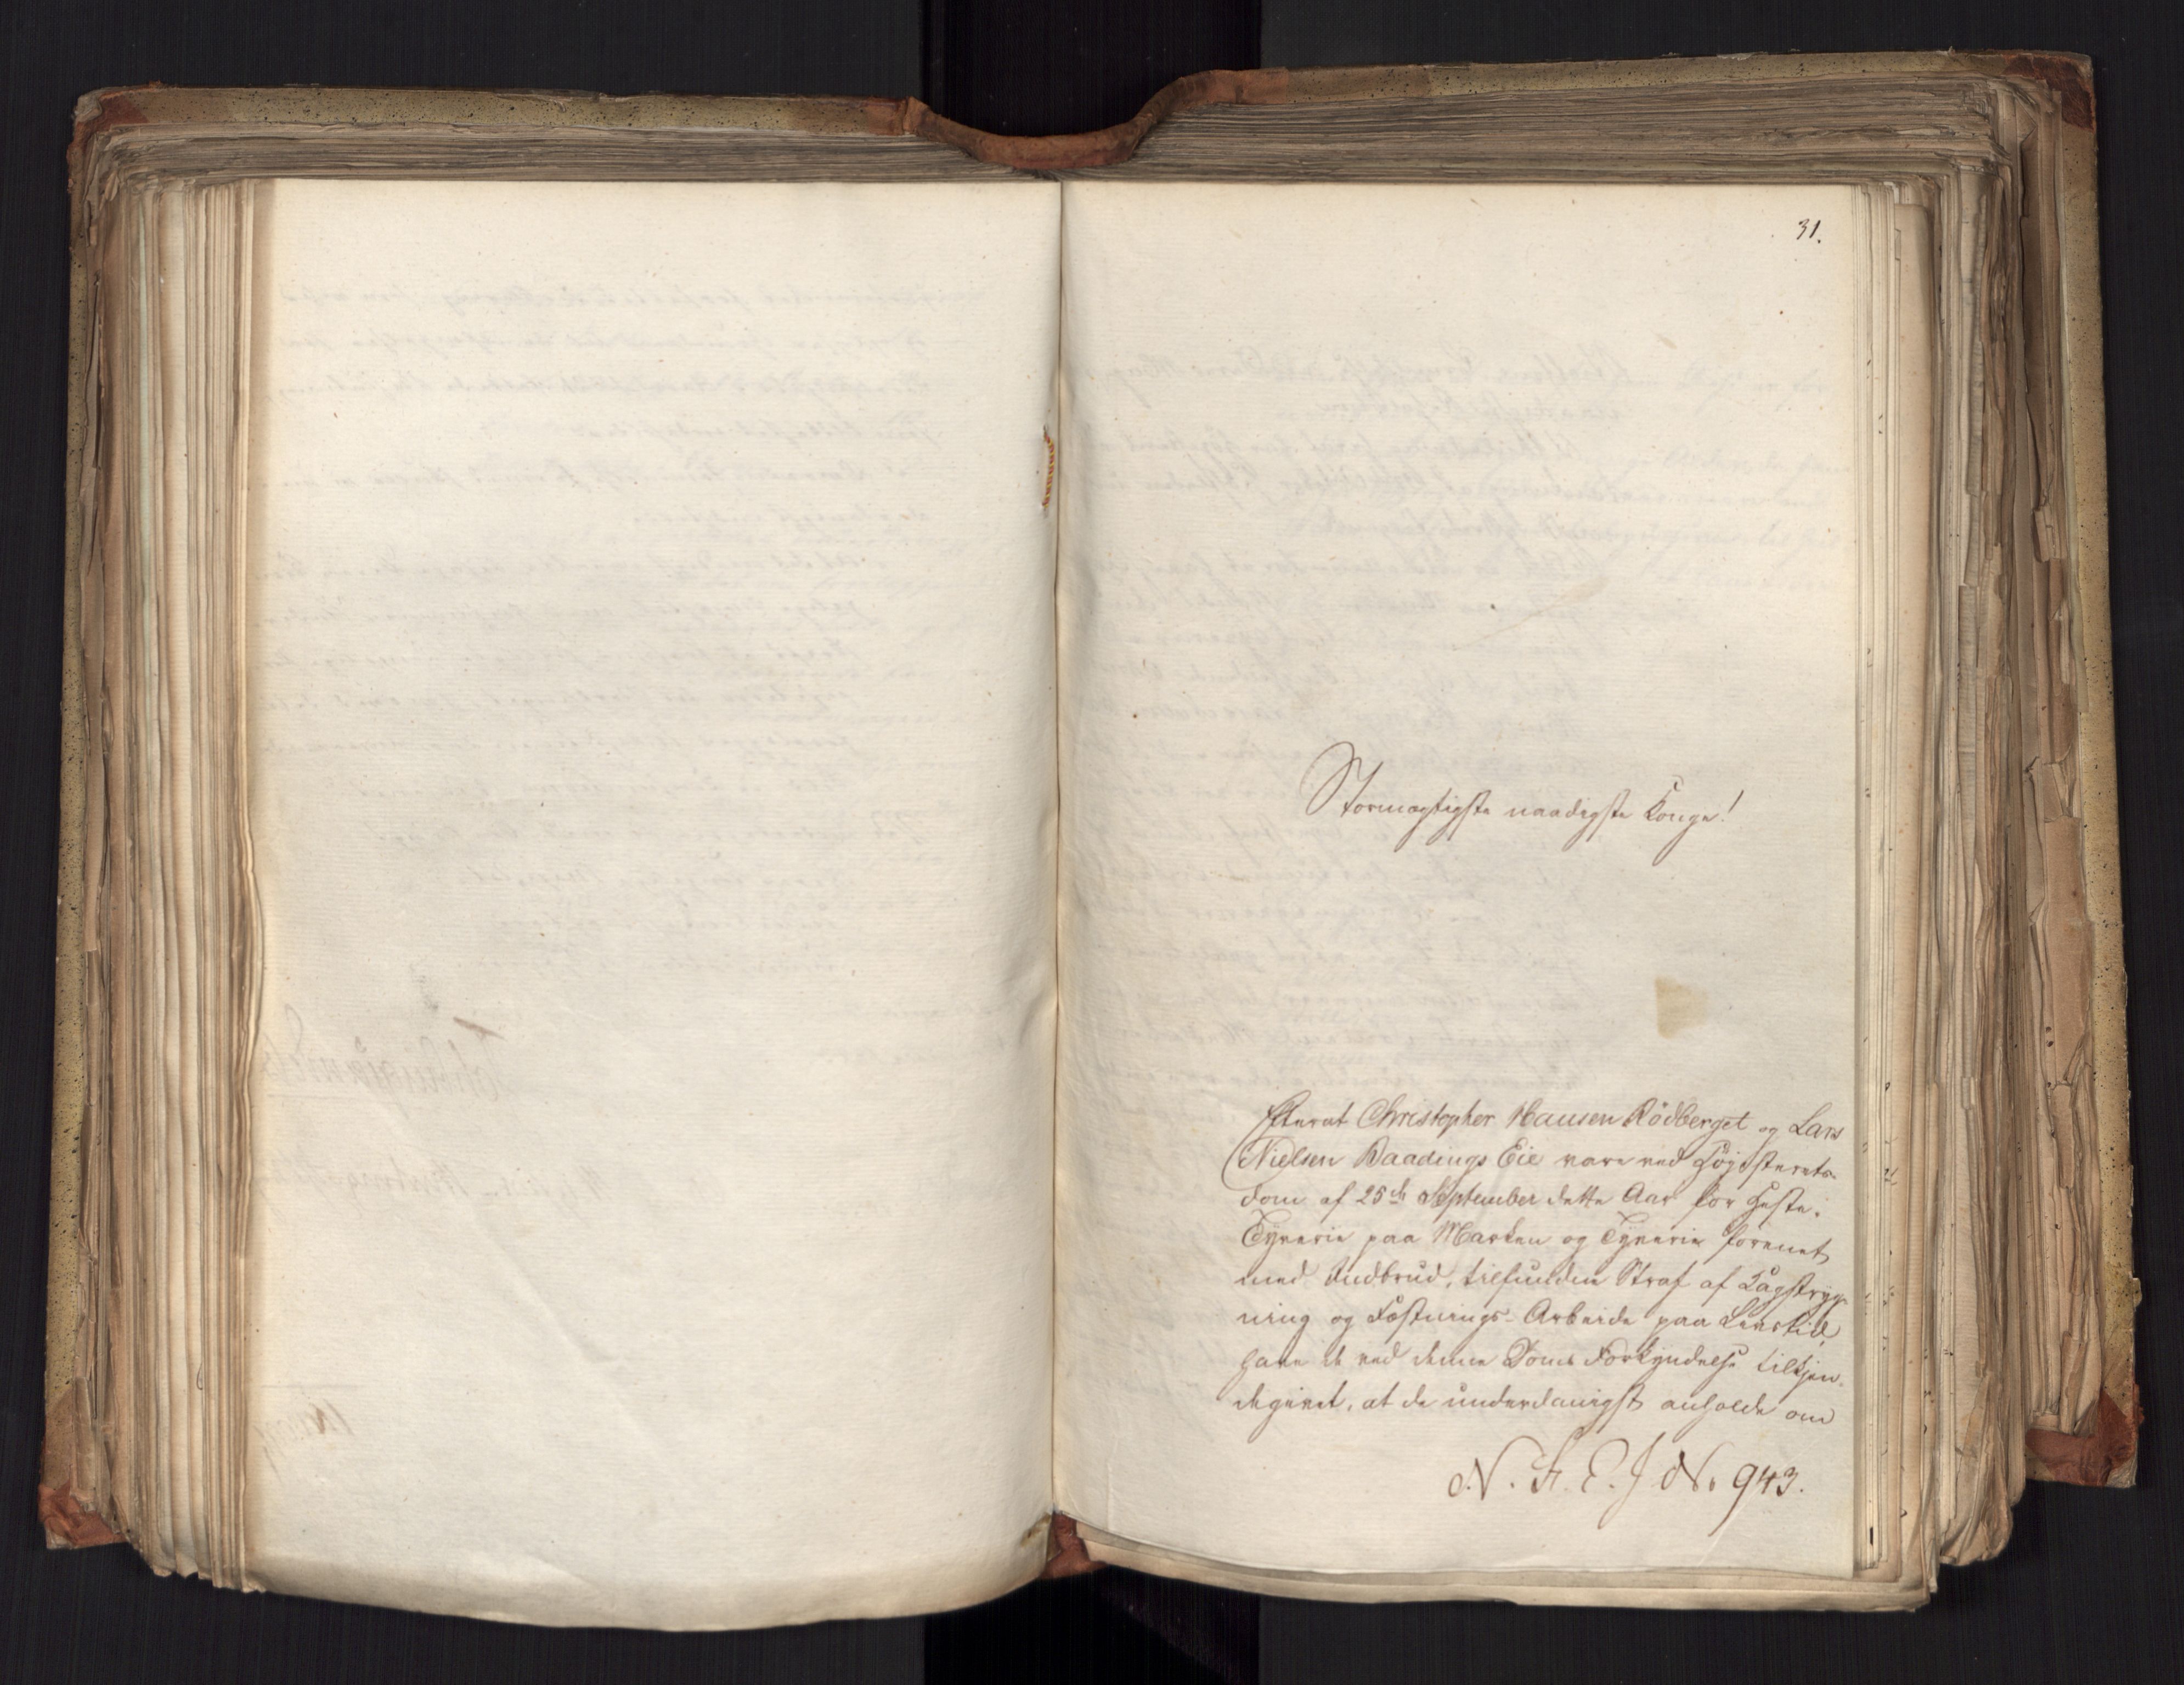 31.
Stormægtigste naadigste Konge!
Efterat Christopher Hansen Rödberget og Lars
Nielsen Baadengs Eie vare ved Høiesterets-
dom af 25de September dette Aar for Heste-
Tyverie paa Marken og Tyverie forenet
med Indbrud, tilfunden Straf af Kagstryg-
ning og Fæstnings-Arbeide paa Livstid
have de ved denne Doms Forkyndelse tilkjen-
degivet, at de underdanigst anholde om
N. St. E. J No. 943.